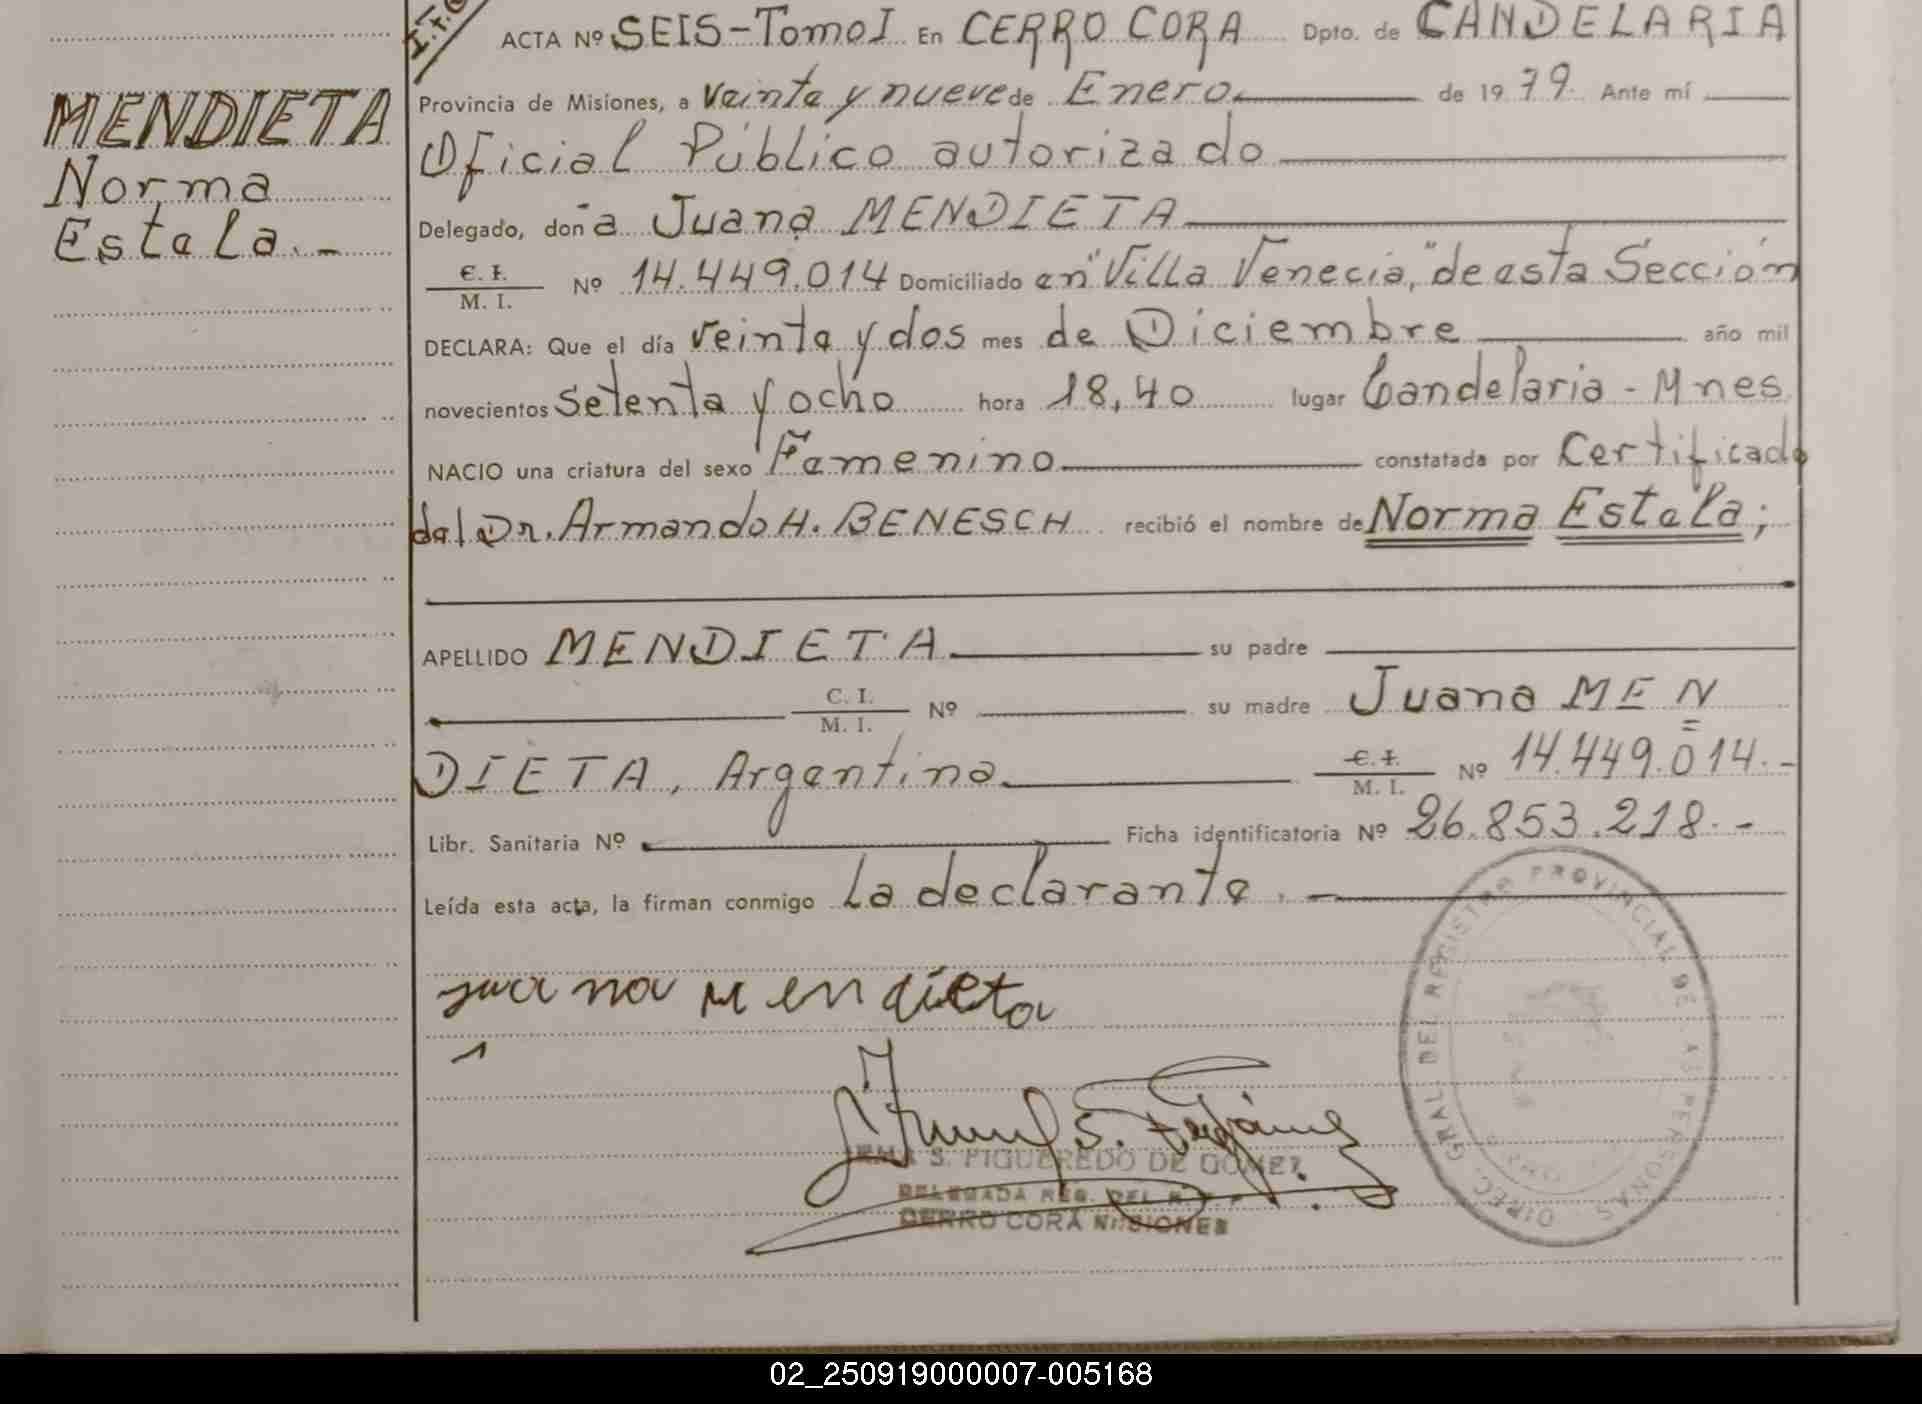 I.F.
ACTA Nº SEIS-Tomo I En CERRO CORA Dpto. de CANDELARIA
MENDIETA
Norma
Estela.-
Provincia de Misiones, a Veinte y nueve de Enero de 1979. Ante mí
Oficial Público autorizado
Delegado, doña Juana MENDIETA
C. I.
M. I. Nº 14.449.014 Domiciliado en "Villa Venecia," de esta Sección
DECLARA: Que el día veinte y dos mes de Diciembre año mil
novecientos setenta y ocho hora 18,40 lugar Candelaria - Mnes.
NACIO una criatura del sexo Femenino constatada por Certificado
del Dr. Armando H. BENESCH recibió el nombre de Norma Estela;
APELLIDO MENDIETA su padre
C. I.
M. I. Nº su madre Juana MEN
DIETA, Argentina C. I.
M. I. Nº 14.449.014.-
Libr. Sanitaria Nº Ficha identificatoria Nº 26.853.218.-
Leída esta acta, la firman conmigo La declarante.-
juana Mendieta
S. FIGUEREDO DE GOMEZ
DELEGADA REG. DEL
CERRO CORÁ MISIONES
DIREC. GRAL. DEL REGISTRO PROVINCIAL DE LAS PERSONAS
02_250919000007-005168